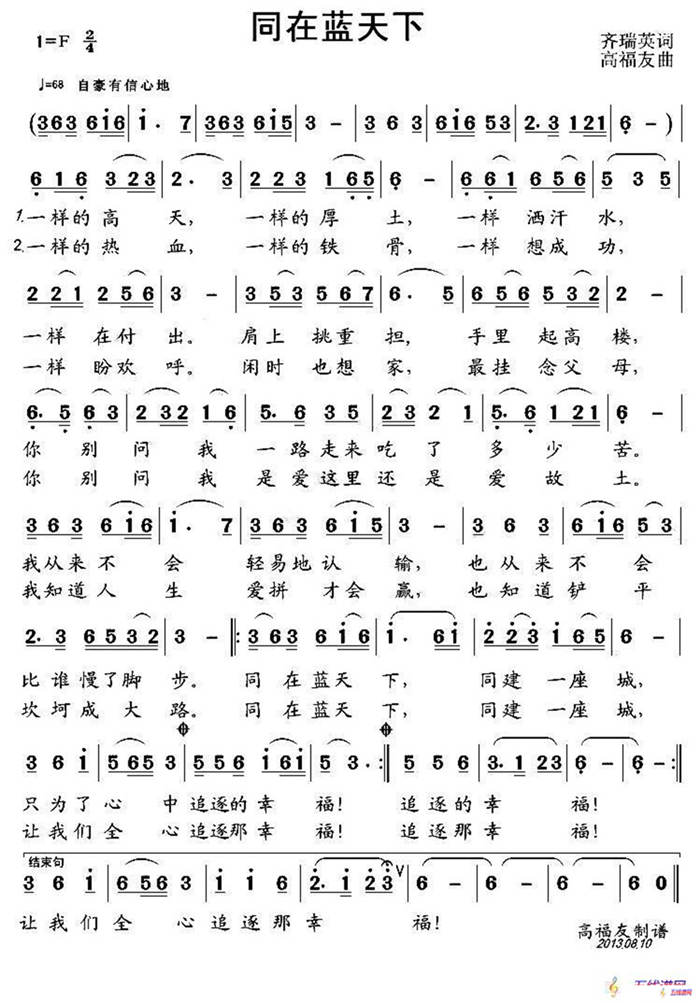 同在蓝天下
1=F 2/4
齐瑞英词
高福友曲
♩=68 自豪有信心地
(363 616 | 1. 7 | 363 615 | 3 - | 3 6 3 | 616 53 | 2. 3 121 | 6 - )
6 1 6 3 23 | 2. 3 | 2 23 1 65 | 6 - | 6 61 6 56 | 5 3 5
1.一样的高天，一样的厚土，一样洒汗水，
2.一样的热血，一样的铁骨，一样想成功，
2 21 2 56 | 3 - | 3 53 5 67 | 6. 5 | 6 56 5 32 | 2 -
一样在付出。肩上挑重担，手里起高楼，
一样盼欢呼。闲时也想家，最挂念父母，
6. 5 6 3 | 2 32 1 6 | 5. 6 35 | 2 3 2 1 | 5. 6 1 21 | 6 -
你别问我一路走来吃了多少苦。
你别问我是爱这里还是爱故土。
3 6 3 6 16 | 1. 7 | 3 6 3 6 15 | 3 - | 3 6 3 | 6 16 5 3
我从来不会轻易地认输，也从来不会
我知道人生爱拼才会赢，也知道铲平
2. 3 6532 | 3 - ‖: 363 6 16 | 1. 61 | 2 23 1 6 | 5 35
比谁慢了脚步。同在蓝天下，同建一座城，
坎坷成大路。同在蓝天下，同建一座城，
3 6 1 | 6 56 3 | 5 5 6 1 61 | 5 3. :‖ 5 5 6 1 | 3. 1 23 | 6 - | 6 - :‖
只为了心中追逐的幸福！追逐的幸福！
让我们全心追逐那幸福！追逐那幸福！
结束句
3 6 1 | 6 56 3 | 5 5 6 1 | 2. 1 23 V | 6 - | 6 - | 6 - | 6 0 ‖
让我们全心追逐那幸福！
高福友制谱
2013.08.10